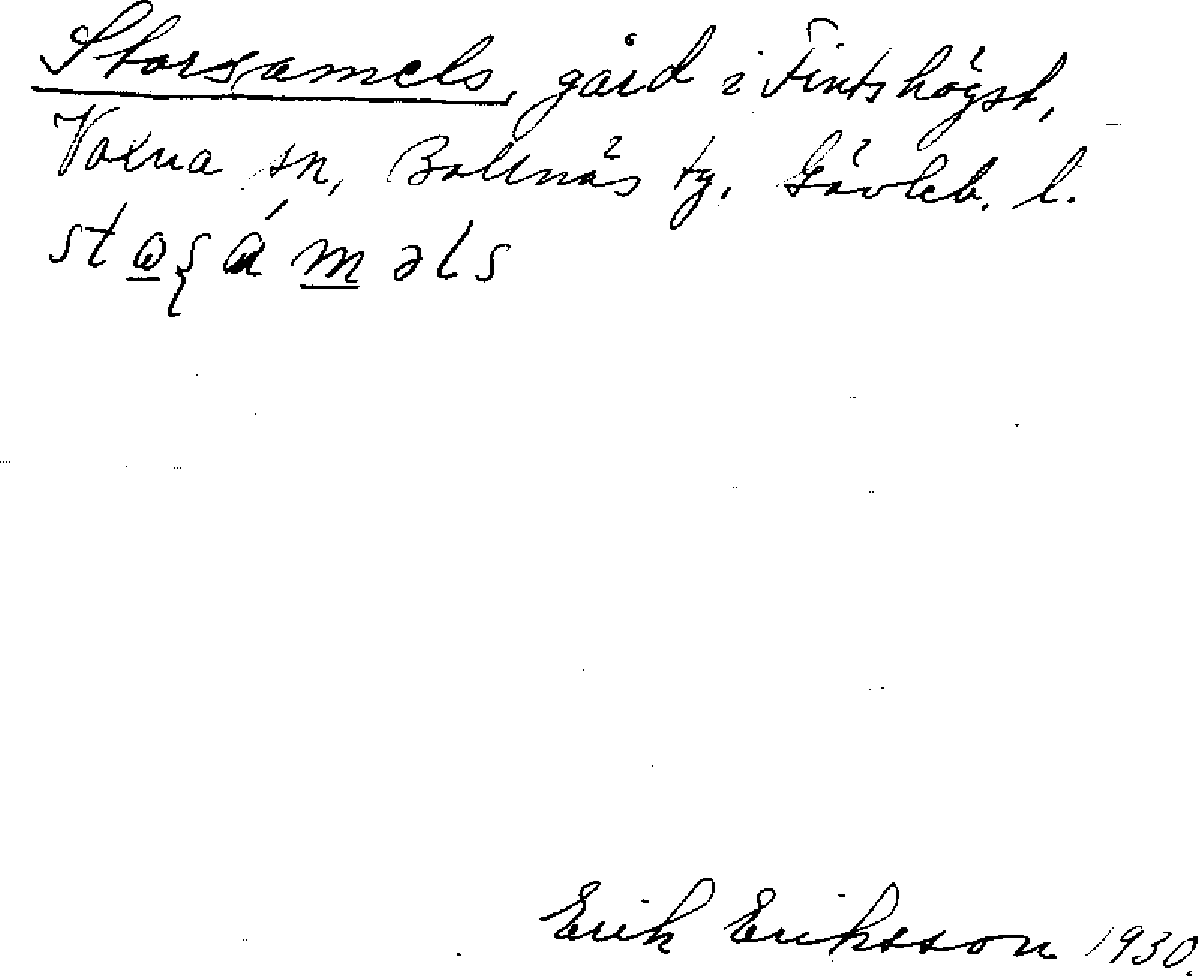 Storsamels, gård i Fintshögst,
Voxna sn, Bollnäs tg, Gävleb. l.
Erik Eriksson 1930.